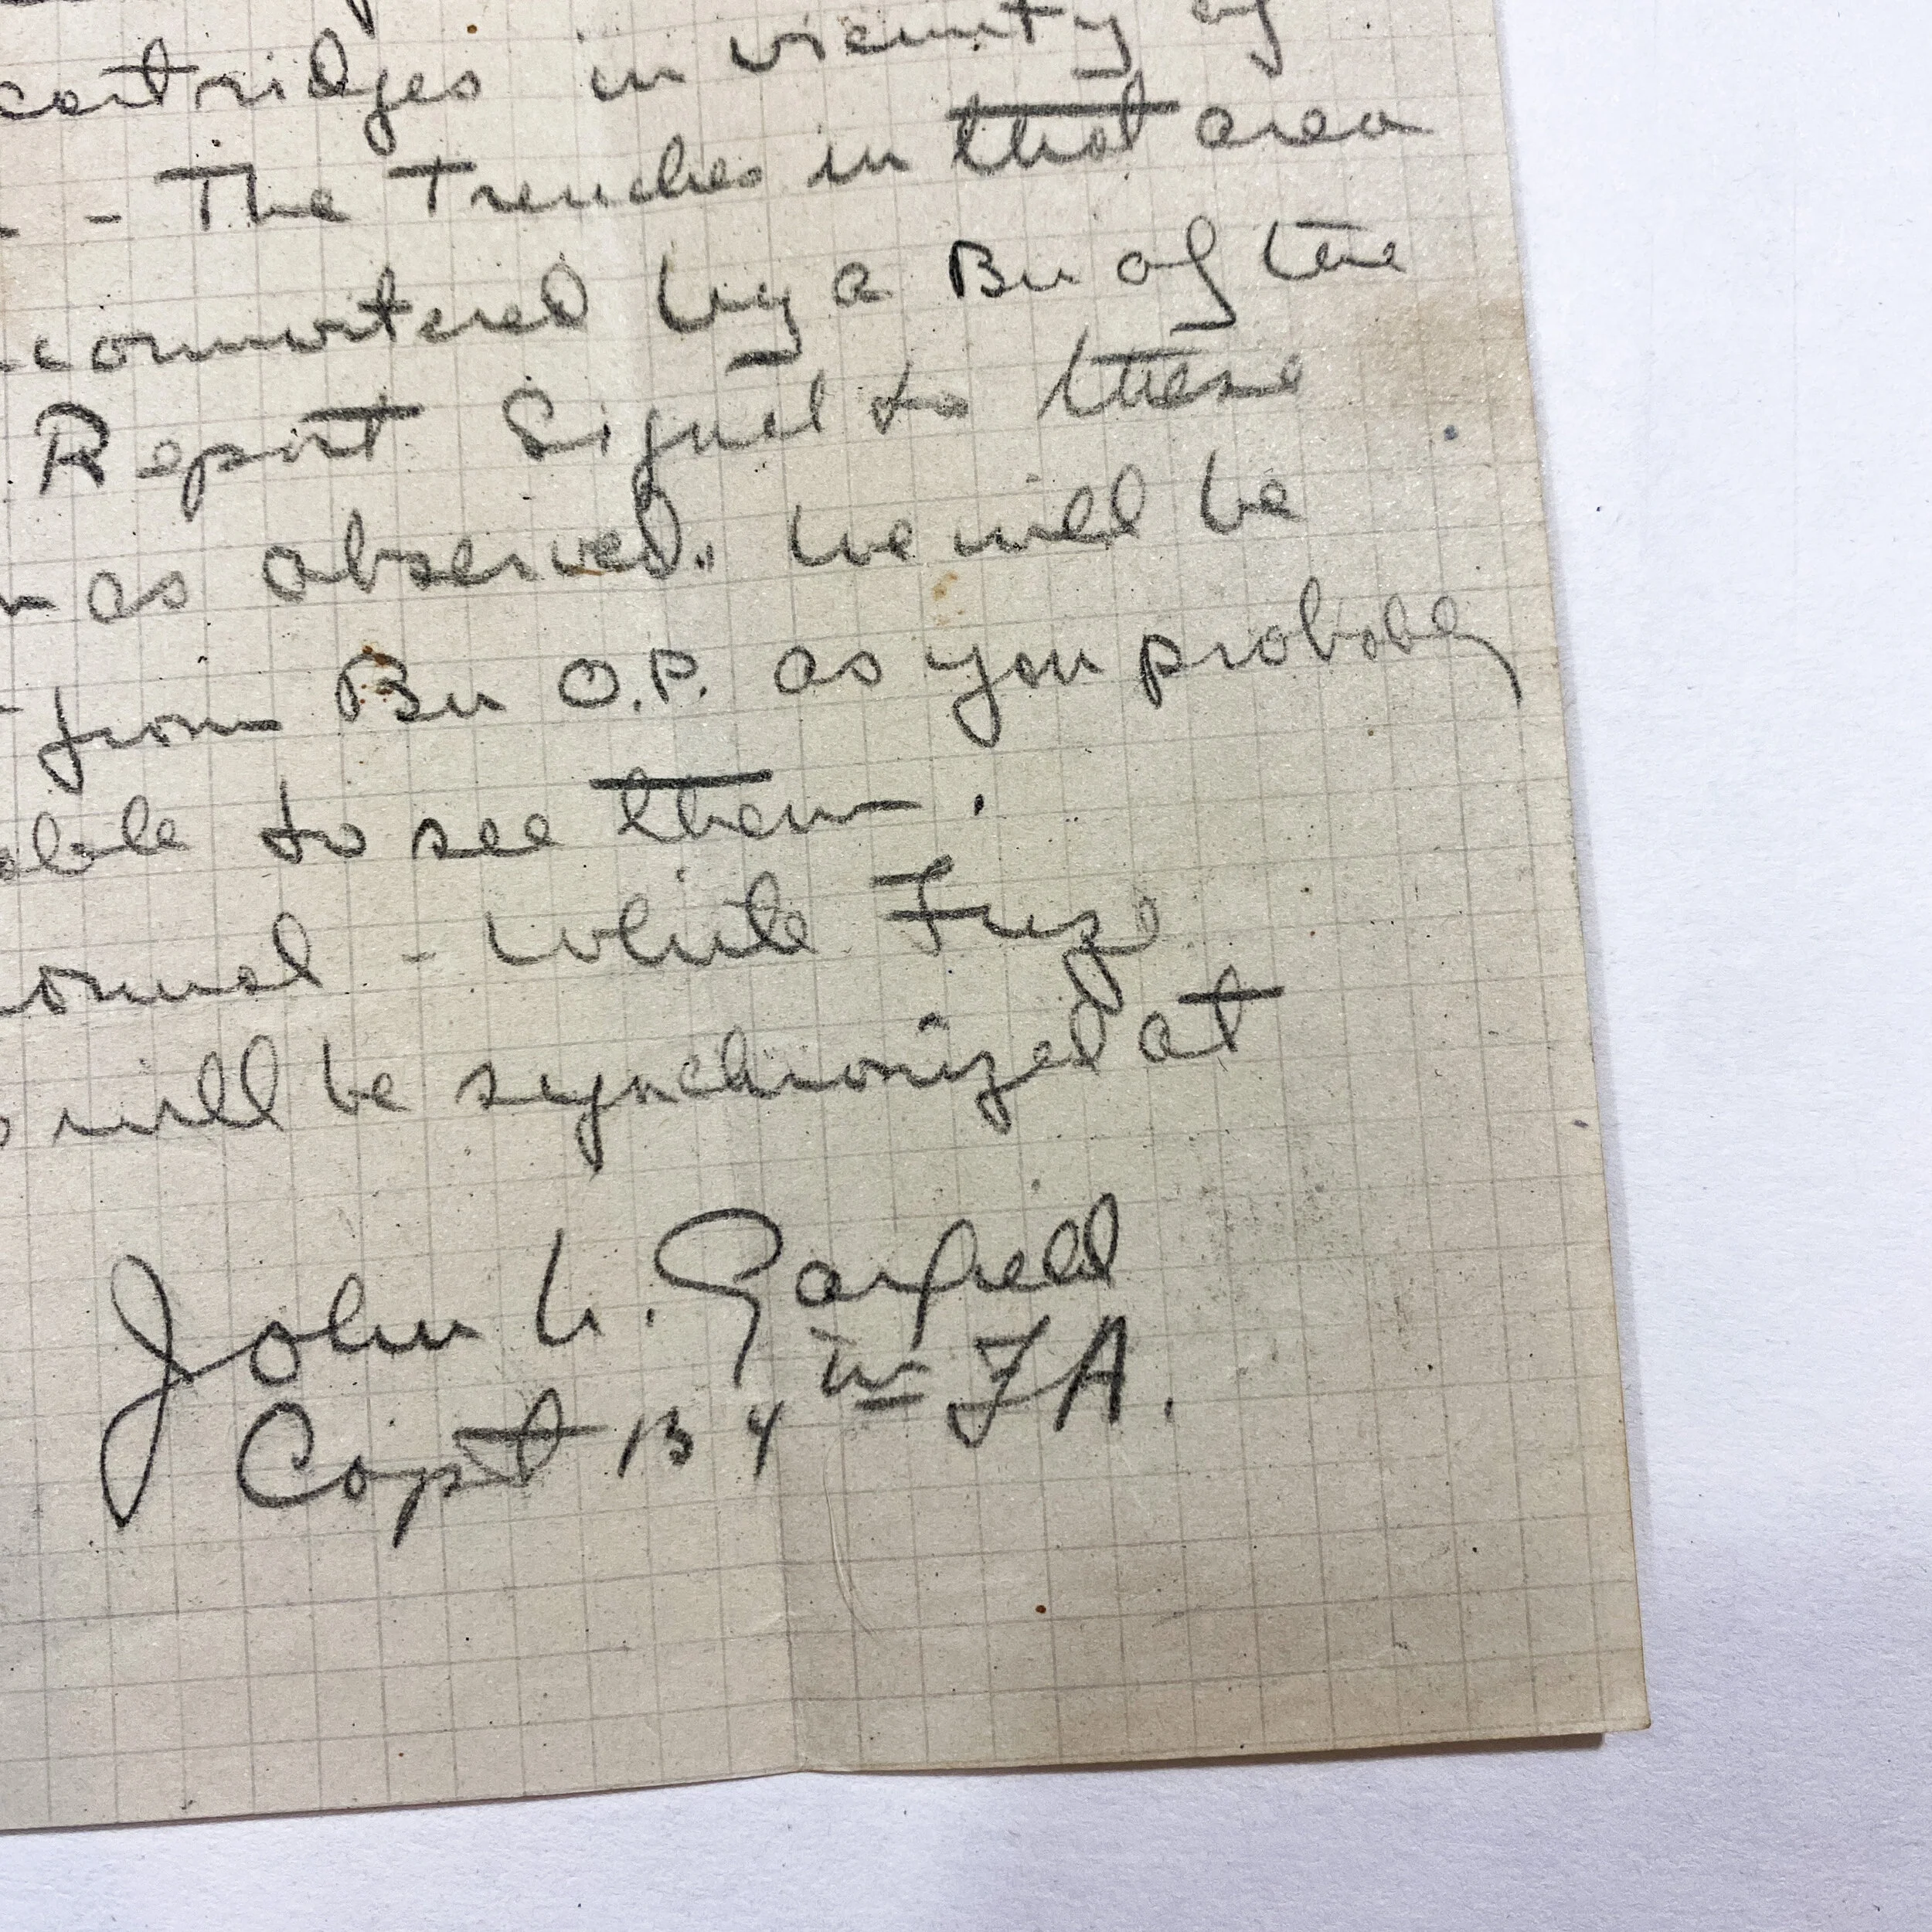 cartridges in vicinity of
- The Trenches in that area
by a Bn of the
Report Signal to these
as observed. We will be
from Bn O.P. as you probably
able to see them.
normal - White Fuze
will be synchronized at
John L. Garfield
Capt 134 th FA.